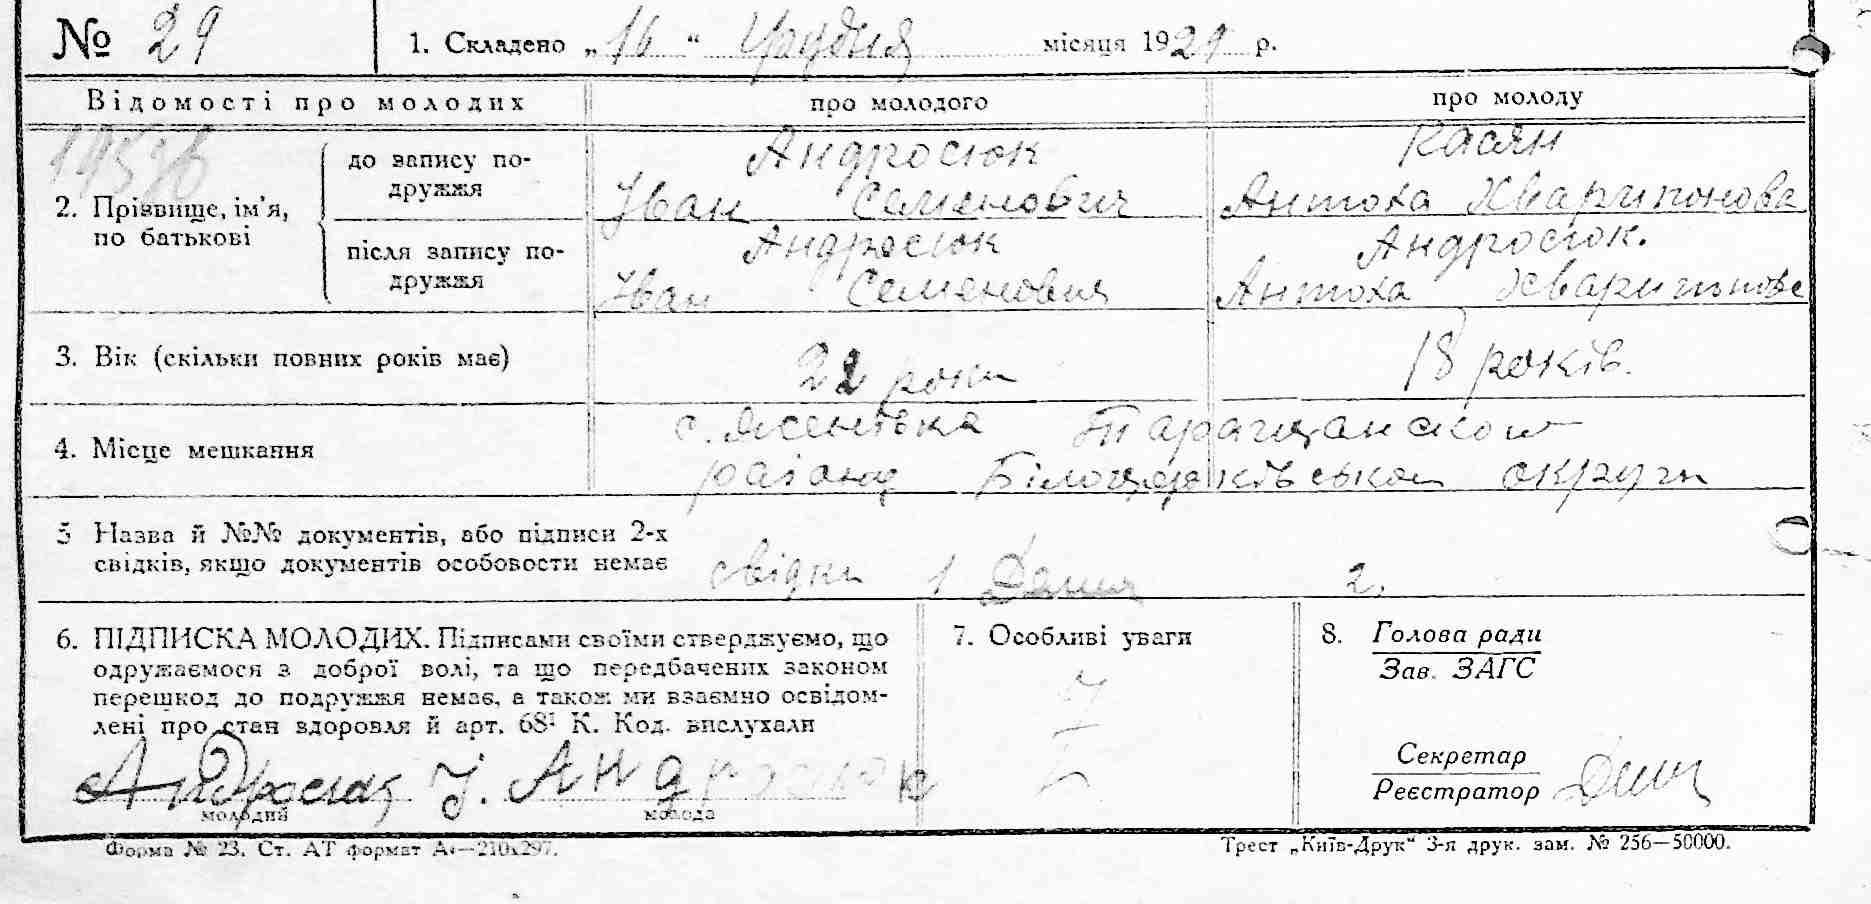 № 29 1. Складено „16“ Грудня місяця 1929 р.
Відомості про молодих про молодого про молоду
2. Прізвище, ім’я, по батькові
до запису по-
дружжя
Андросюк
Іван Семенович
Касян
Антоха Хварипонова
після запису по-
дружжя
Андросюк
Іван Семенович
Андросюк.
Антоха
3. Вік (скільки повних років має) 22 роки 18 років.
4. Місце мешкання
с. Лісенівка Таращанского
району Білоцерківської округи
5 Назва й №№ документів, або підписи 2-х
свідків, якщо документів особовости немає
свідки 1 2.
6. ПІДПИСКА МОЛОДИХ. Підписами своїми стверджуємо, що
одружаємося з доброї волі, та що передбачених законом
перешкод до подружжя немає, а також ми взаємно освідом-
лені про стан здоровля й арт. 68¹ К. Код. вислухали
Андросюк І. Андросюк
молодий молода
7. Особливі уваги
8. Голова ради
Зав. ЗАГС
Секретар
Реєстратор
Форма № 23. Ст. АТ формат А4—210х297.
Трест „Київ-Друк“ 3-я друк. зам. № 256—50000.